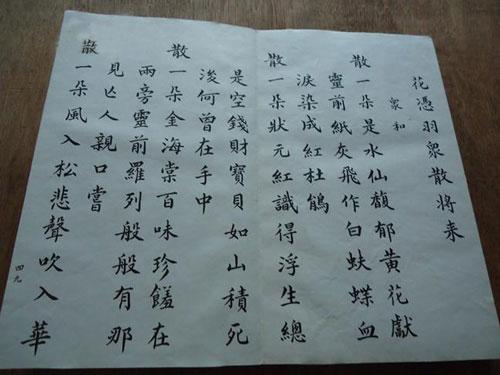 花憑羽眾散將来
眾和
散一朵是水仙馥郁黄花獻
靈前紙灰飛作白蚨蝶血
淚染成紅杜鵑
散一朵狀元紅識得浮生總
是空錢財寶貝如山積死
浚何曾在手中
散一朵金海棠百味珍饈在
兩旁靈前羅列般般有那
見亡人親口嘗
散一朵風入松悲聲吹入華
四九